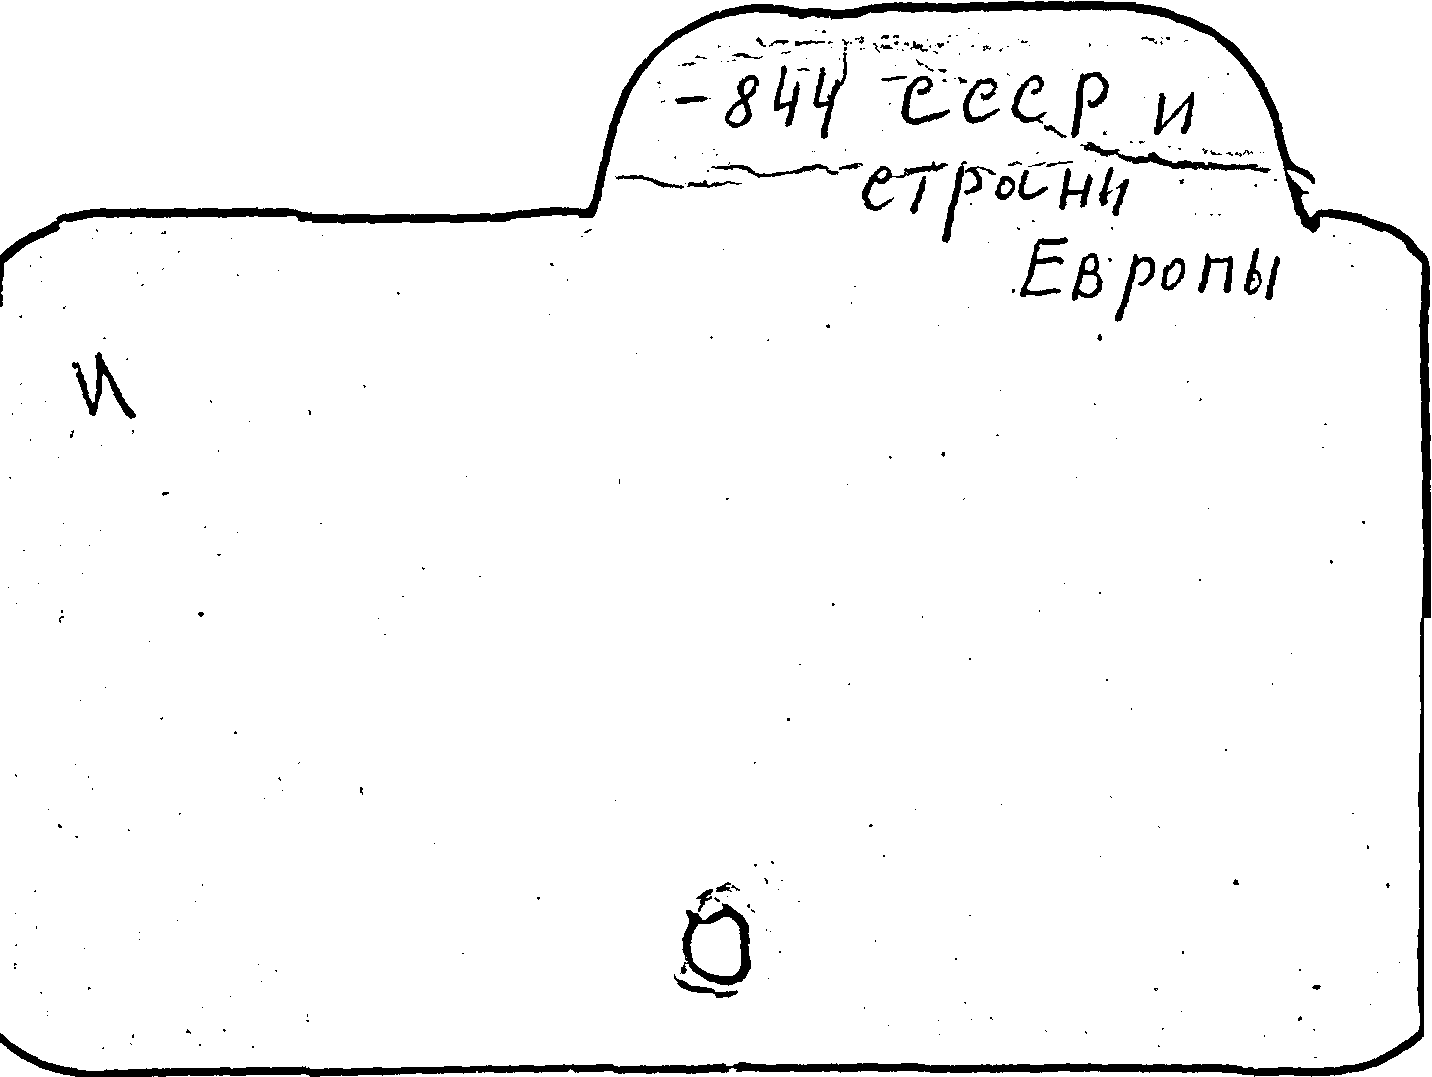 -844 СССР и
страни
Европы
И